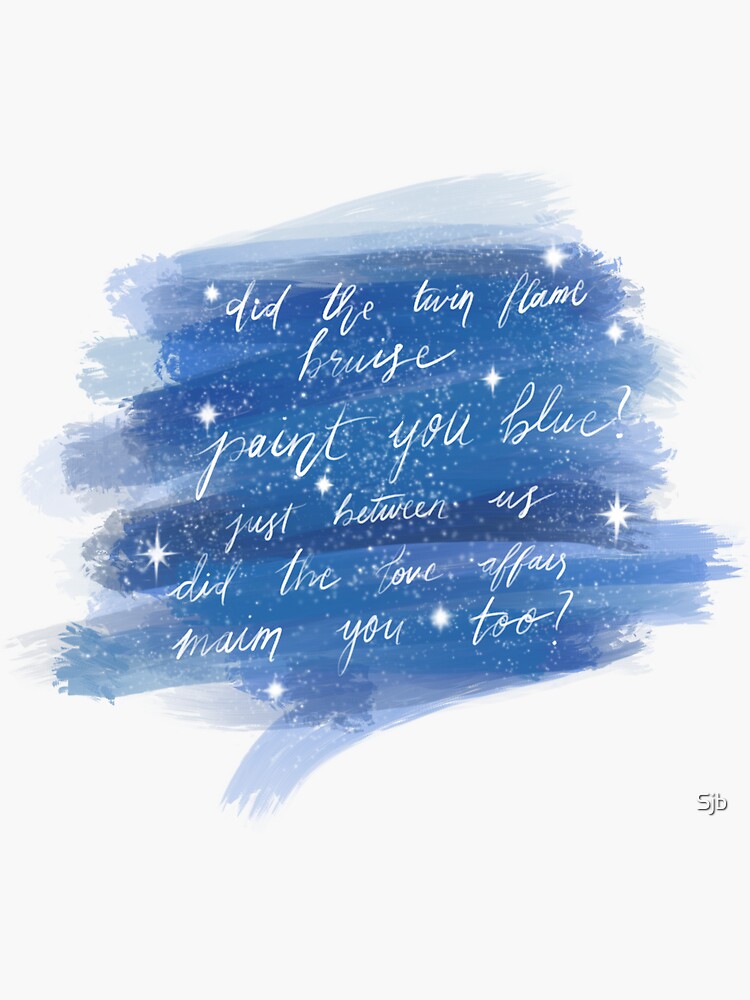 did the twin flame
bruise
paint you blue?
just between us
did the love affair
maim you too?
Sjb